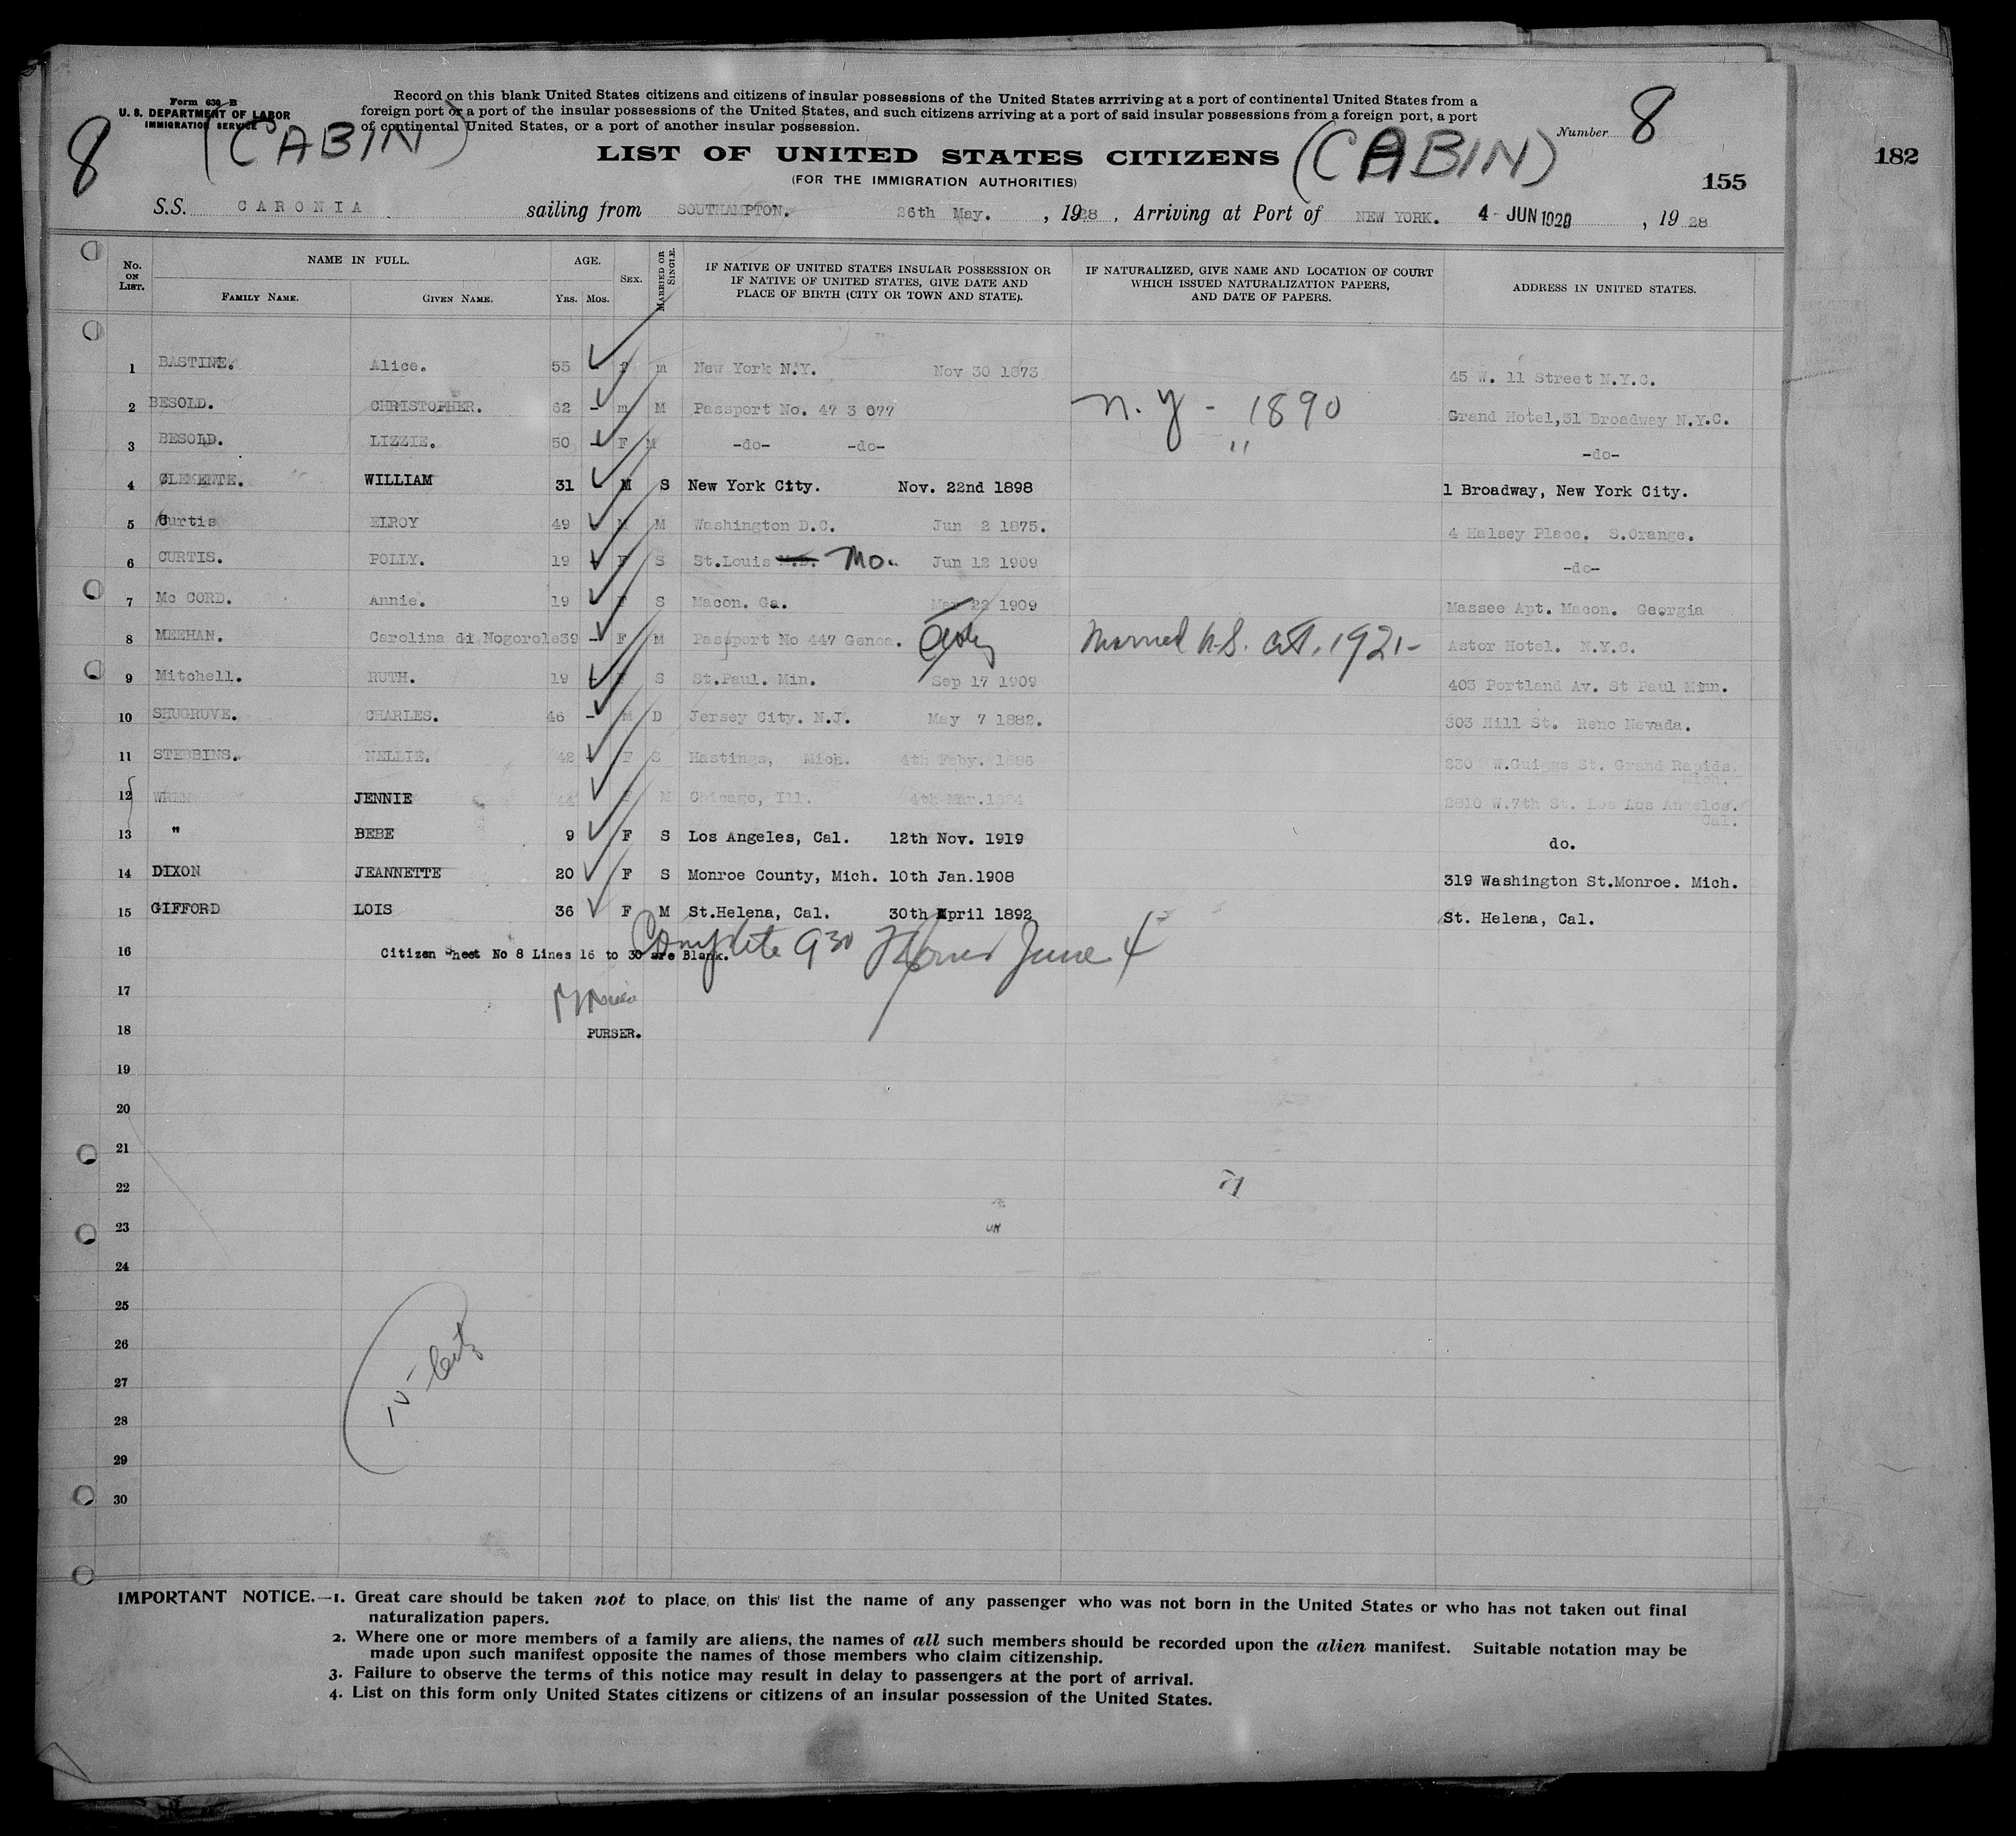 Form 630 B
U. S. DEPARTMENT OF LABOR
IMMIGRATION SERVICE
Record on this blank United States citizens and citizens of insular possessions of the United States arrriving at a port of continental United States from a
foreign port or a port of the insular possessions of the United States, and such citizens arriving at a port of said insular possessions from a foreign port, a port
of continental United States, or a port of another insular possession.
Number 8
8 (CABIN)
LIST OF UNITED STATES CITIZENS (CABIN)
182
(FOR THE IMMIGRATION AUTHORITIES)
155
S.S. CARONIA sailing from SOUTHAMPTON. 26th May. , 1928 , Arriving at Port of NEW YORK. 4 - JUN 1928 , 19 28
No. ON LIST. NAME IN FULL. AGE. SEX. MARRIED OR SINGLE. IF NATIVE OF UNITED STATES INSULAR POSSESSION OR IF NATIVE OF UNITED STATES, GIVE DATE AND PLACE OF BIRTH (CITY OR TOWN AND STATE). IF NATURALIZED, GIVE NAME AND LOCATION OF COURT WHICH ISSUED NATURALIZATION PAPERS, AND DATE OF PAPERS. ADDRESS IN UNITED STATES.
FAMILY NAME. GIVEN NAME. Yrs. Mos.
1 BASTINE. Alice. 55 f m New York N.Y. Nov 30 1873 45 W. 11 Street N.Y.C.
2 BESOLD. CHRISTOPHER. 62 - m M Passport No. 47 3 677 N.Y - 1890 Grand Hotel,31 Broadway N.Y.C.
3 BESOLD. LIZZIE. 50 - F M -do- -do- " -do-
4 CLEMENTE. WILLIAM 31 - M S New York City. Nov. 22nd 1898 1 Broadway, New York City.
5 Curtis ELROY 49 M M Washington D.C. Jun 2 1875. 4 Halsey Place. S.Orange.
6 CURTIS. POLLY. 19 F S St.Louis M.D. Mo. Jun 12 1909 -do-
7 Mc CORD. Annie. 19 F S Macon. Ga. Mar 22 1909 Massee Apt. Macon. Georgia
8 MEEHAN. Carolina di Nogorole 39 - F M Passport No 447 Genoa. Married U.S. Cit. 1921- Astor Hotel. N.Y.C.
9 Mitchell. RUTH. 19 F S St.Paul. Min. Sep 17 1909 403 Portland Av. St Paul Minn.
10 SHUGRUVE. CHARLES. 46 - M D Jersey City. N.J. May 7 1882. 303 Hill St. Reno Nevada.
11 STEBBINS. NELLIE. 42 F S Hastings, Mich. 4th Feby. 1886 230 W. St. Grand Rapids.
12 JENNIE 44 F M Chicago, Ill. 4th Mar.1884 2810 W.7th St. Los Los Angelos. Cal.
13 " BEBE 9 F S Los Angeles, Cal. 12th Nov. 1919 do.
14 DIXON JEANNETTE 20 F S Monroe County, Mich. 10th Jan.1908 319 Washington St.Monroe. Mich.
15 GIFFORD LOIS 36 F M St.Helena, Cal. 30th April 1892 St. Helena, Cal.
Complete 930 June 4
16 Citizen Sheet No 8 Lines 16 to 30 are Blank.
17
18 PURSER.
19
20
21
22
23
24
25
26
27
28
29
30
IMPORTANT NOTICE.—1. Great care should be taken not to place on this list the name of any passenger who was not born in the United States or who has not taken out final
naturalization papers.
2. Where one or more members of a family are aliens, the names of all such members should be recorded upon the alien manifest. Suitable notation may be
made upon such manifest opposite the names of those members who claim citizenship.
3. Failure to observe the terms of this notice may result in delay to passengers at the port of arrival.
4. List on this form only United States citizens or citizens of an insular possession of the United States.